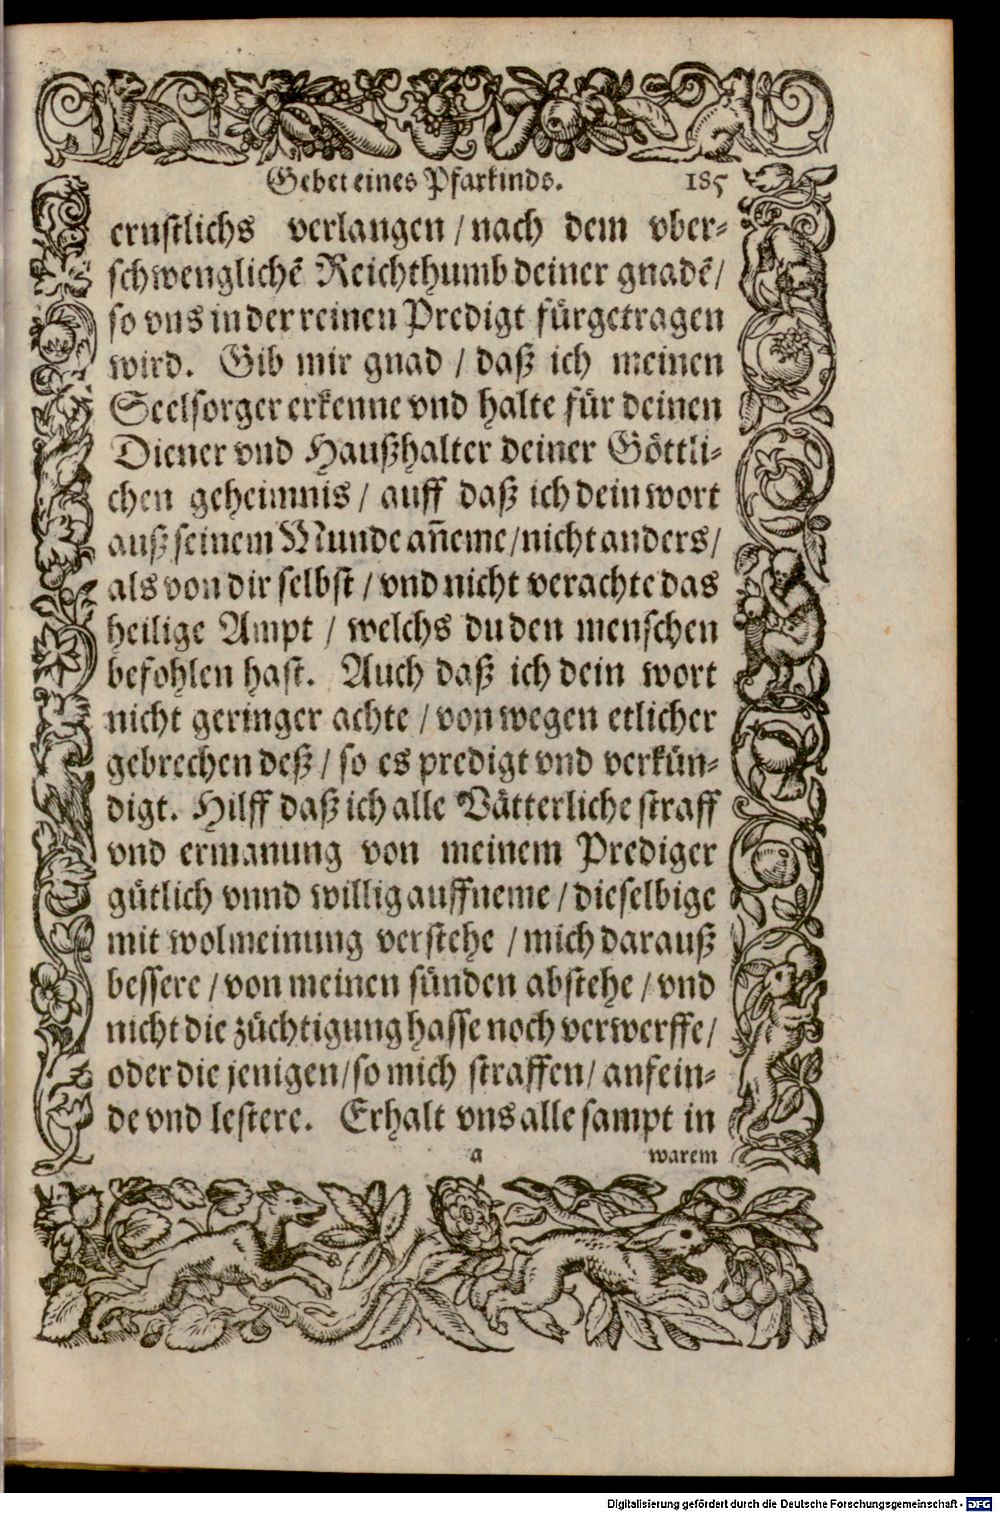 Gebet eines Pfarkinds. 185
ernstlichs verlangen / nach dem vber-
schwenglichē Reichthumb deiner gnadē /
so vns in der reinen Predigt fürgetragen
wird. Gib mir gnad / daß ich meinen
Seelsorger erkenne vnd halte für deinen
Diener vnd Haußhalter deiner Göttli-
chen geheimnis / auff daß ich dein wort
auß seinem Munde an̄eme / nicht anders /
als von dir selbst / vnd nicht verachte das
heilige Ampt / welchs du den menschen
befohlen hast. Auch daß ich dein wort
nicht geringer achte / von wegen etlicher
gebrechen deß / so es predigt vnd verkün-
digt. Hilff daß ich alle Vätterliche straff
vnd ermanung von meinem Prediger
gütlich vnnd willig auffneme / dieselbige
mit wolmeinung verstehe / mich darauß
bessere / von meinen sünden abstehe / vnd
nicht die züchtigung hasse noch verwerffe /
oder die jenigen / so mich straffen / anfein-
de vnd lestere. Erhalt vns alle sampt in
a warem
Digitalisierung gefördert durch die Deutsche Forschungsgemeinschaft - DFG